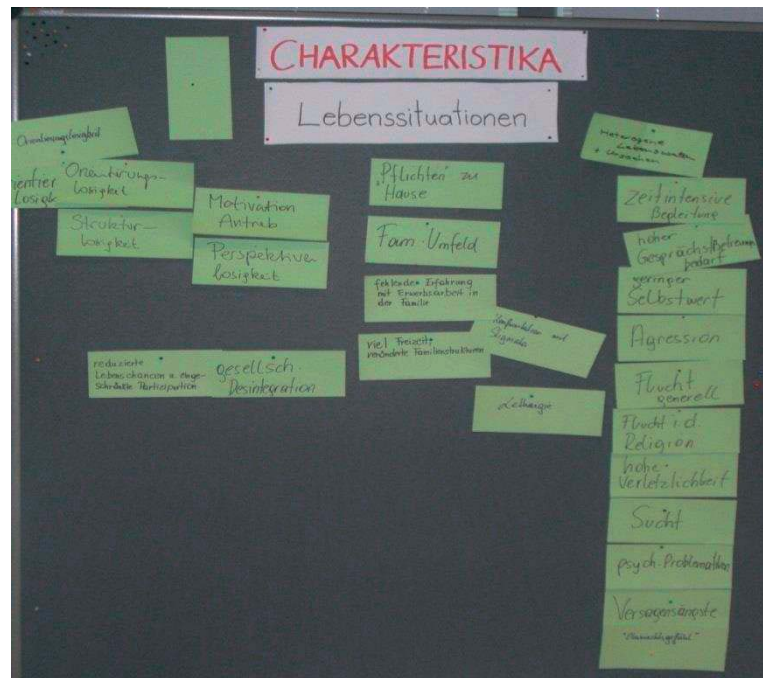 CHARAKTERISTIKA
Lebenssituationen
Orientierungslosigkeit
Orientirungs-
losigkeit
Losigk
Struktur-
losigkeit
Motivation
Antrieb
Perspektiven
losigkeit
reduzierte
Lebenschancen u. einge-
schränkte Partizipation
gesellsch.
Desintegration
Pflichten zu
Hause
Fam. Umfeld
fehlende Erfahrung
mit Erwerbsarbeit in
der Familie
viel Freizeit,
veränderte Familienstrukturen
Konfrontation mit
Stigmata
Lethargie
Heterogene
Lebenswelten
+ Ursachen
Zeitintensive
Begleitung
hoher
Gesprächs/Betreuungs
bedarf
geringer
Selbstwert
Agression
Flucht
generell
Flucht i.d.
Religion
hohe
Verletzlichkeit
Sucht
psych. Problematiken
Versagensängste